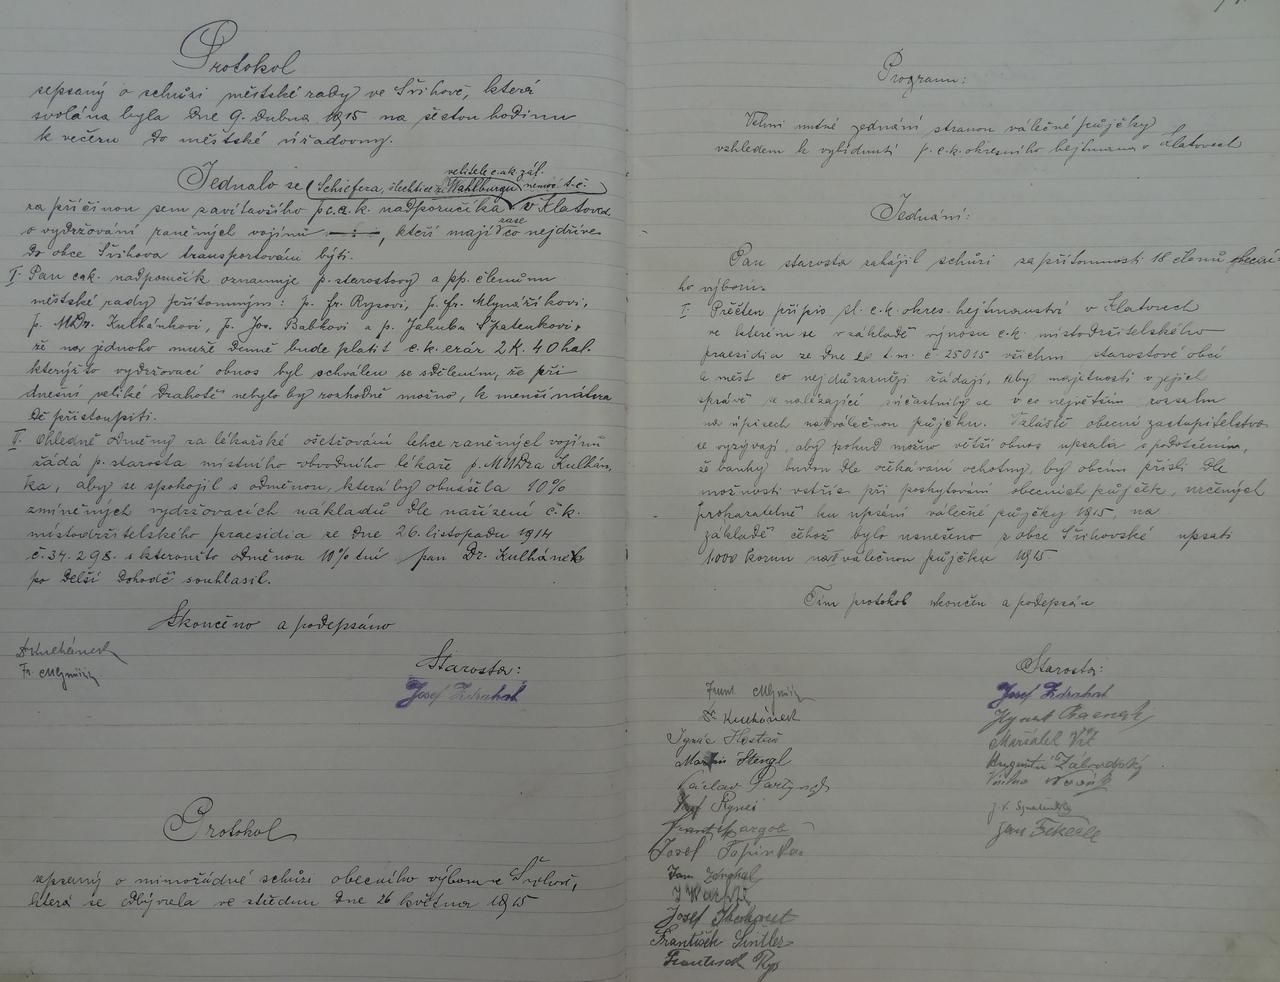 Protokol
sepsaný o schůzi městské rady ve Švihově, která
svolána byla dne 9. dubna 1915 na šestou hodinu
k večeru do městské úřadovny.
velitele c. a k. zál.
Jednalo se (Schiefera, šlechtice z Wahlburgu nemoc. t. č.
za příčinou sem zavítavšího p. c. a k. nadporučíka v Klatovech
o vydržování raněných vojínů, kteří mají zase co nejdříve
do obce Švihova transportováni býti.
I. Pan c. a k. nadporučík oznamuje p. starostovy a pp. členům
městské rady přítomným: p. Fr. Rysovi, p. Fr. Mlynaříkovi,
p. MUDr. Kulhánkovi, p. Jos. Babkovi a p. Jakubu Špatenkovi,
že na jednoho muže denně bude platit c. k. erár 2 K. 40 hal.
kterýžto vydržovací obnos byl schválen se sdělením, že při
dnešní veliké drahotě nebylo by rozhodně možno, k menší náhra
dě přistoupiti.
II. Ohledně odměny za lékařské ošetřování lehce raněných vojínů
žádá p. starosta místního obvodního lékaře p. MUDra Kulhán,
ka, aby se spokojil s odměnou, která by obnášela 10%
zmíněných vydržovacích nákladů dle nařízení c. k.
místodržitelského praesidia ze dne 26. listopadu 1914
č. 34.298. s kteroužto odměnou 10% tní pan Dr. Kulhánek
po delší dohodě souhlasil.
Skončeno a podepsáno
Dr Kulhánek
Fr. Mlynařík
Starosta:
Josef Zdrahal
Protokol
sepsaný o mimořádné schůzi obecního výboru ve Švihově,
která se odbývala ve středu dne 26 května 1915
Program:
Velmi nutné jednání stranou válečné půjčky
vzhledem k vybídnutí p. c. k. okresního hejtmana v Klatovech
Jednání:
Pan starosta zahájil schůzi za přítomnosti 18 členů obecní-
ho výboru.
I. Přečten přípis sl. c. k. okres. hejtmanství v Klatovech
ve kterém se v základě výnosu c. k. místodržitelského
praesidia ze dne t. m. č 25015 všichni starostové obcí
a měst co nejdůrazněji žádají, aby majetnosti v jejich
správě a náležející súčastnily se v co největším rozsahu
na úpisech na válečnou půjčku. Zvláště obecní zastupitelstva
se vyzývají, aby pokud možno větší obnos upsala s podotčením,
že banky budou dle očekávání ochotny, by obcím přišli dle
možnosti vstříc při poskytování obecních půjček, určených
prokazatelně ku upsání válečné půjčky 1915, na
základě čehož bylo usneseno z obce Švihovské upsati
1.000 korun na válečnou půjčku 1915
Tím protokol skončen a podepsán
Starosta:
Josef Zdrahal
Frant. Mlynařík
Dr Kulhánek
Ignác
Maršálek Vít
Martin Stengl
Václav
Josef
Josef Topinka
Jan
Josef
František
František Rys
Jan